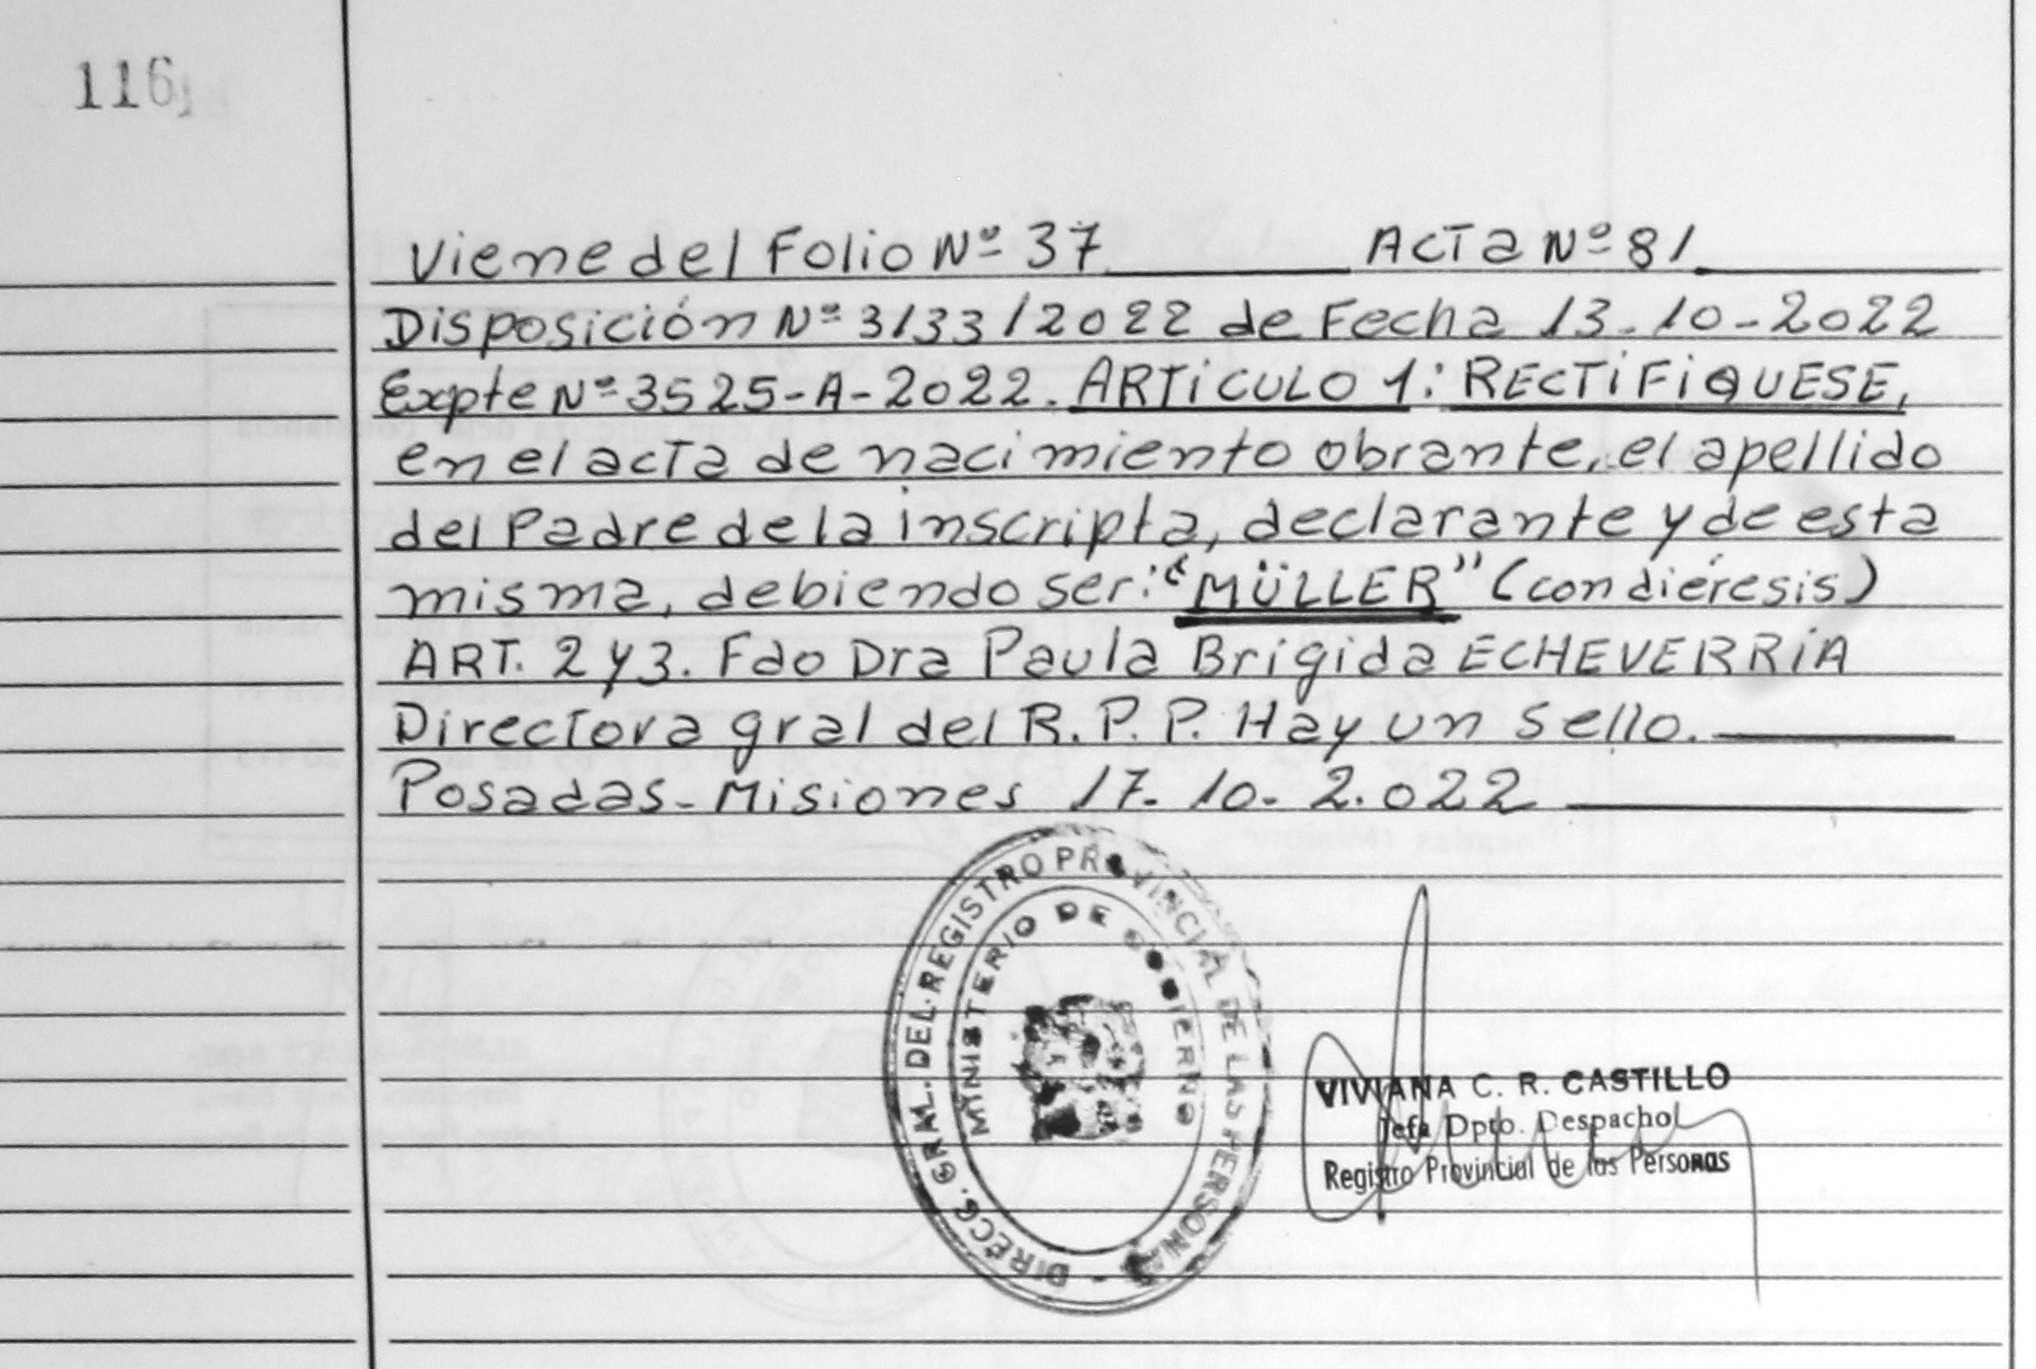 116
Viene del Folio Nº 37 ACTA Nº 81
Disposición Nº 3133/2022 de Fecha 13-10-2022
Expte Nº 3525-A-2022. ARTiCULO 1: RECTiFiQUESE,
en el acta de nacimiento obrante, el apellido
del Padre de la inscripta, declarante y de esta
misma, debiendo ser: "MÜLLER" (con diéresis)
ART. 2 y 3. Fdo Dra Paula Brigida ECHEVERRiA
Directora gral del R.P.P. Hay un sello.
Posadas-Misiones 17-10-2.022
DIRECC. GRAL. DEL REGISTRO PROVINCIAL DE LAS PERSONAS
MINISTERIO DE GOBIERNO
VIVIANA C. R. CASTILLO
Jefa Dpto. Despacho
Registro Provincial de las Personas